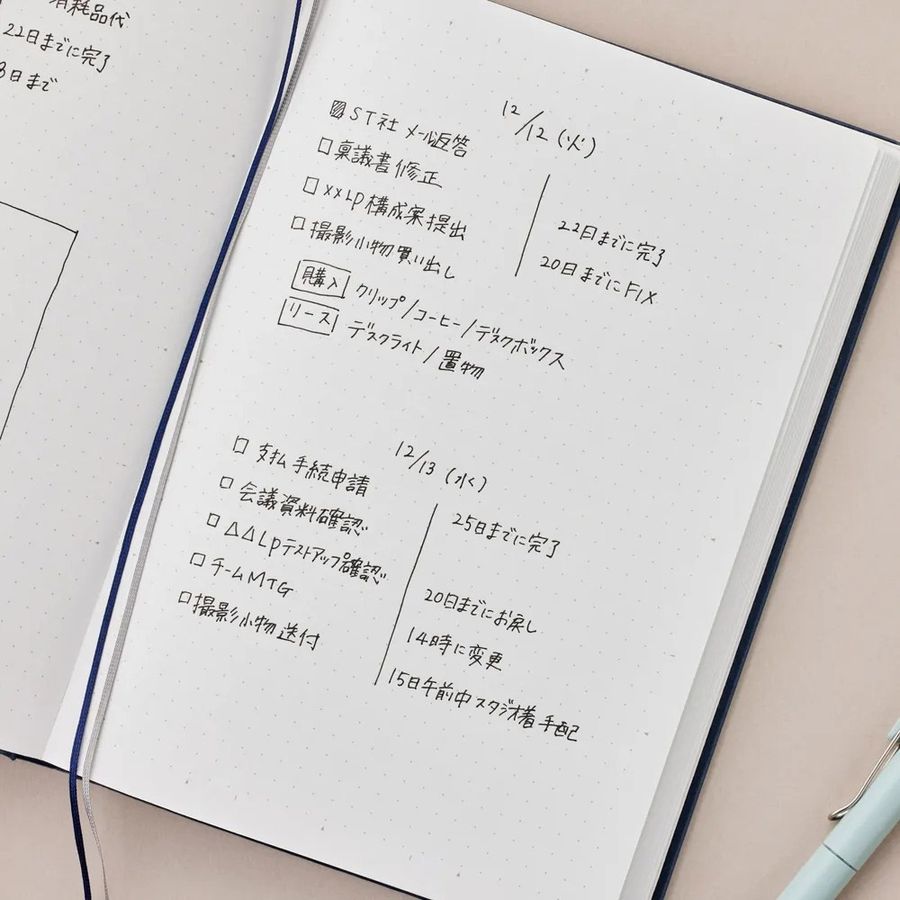 有耗品代
22日までに完了
8日まで
12/12(火)
ST社 メール返答
□稟議書修正
□xxLP構成案提出 22日までに完了
□撮影小物買い出し 20日までにFIX
購入 クリップ/コーヒー/デスクボックス
リース デスクライト/置物
12/13(水)
□ 支払手続申請
□ 会議資料確認 25日までに完了
□ △△LPテストアップ確認
□ チームMTG 20日までにお戻し
□撮影小物送付 14時に変更
15日午前中スタジオ着手配